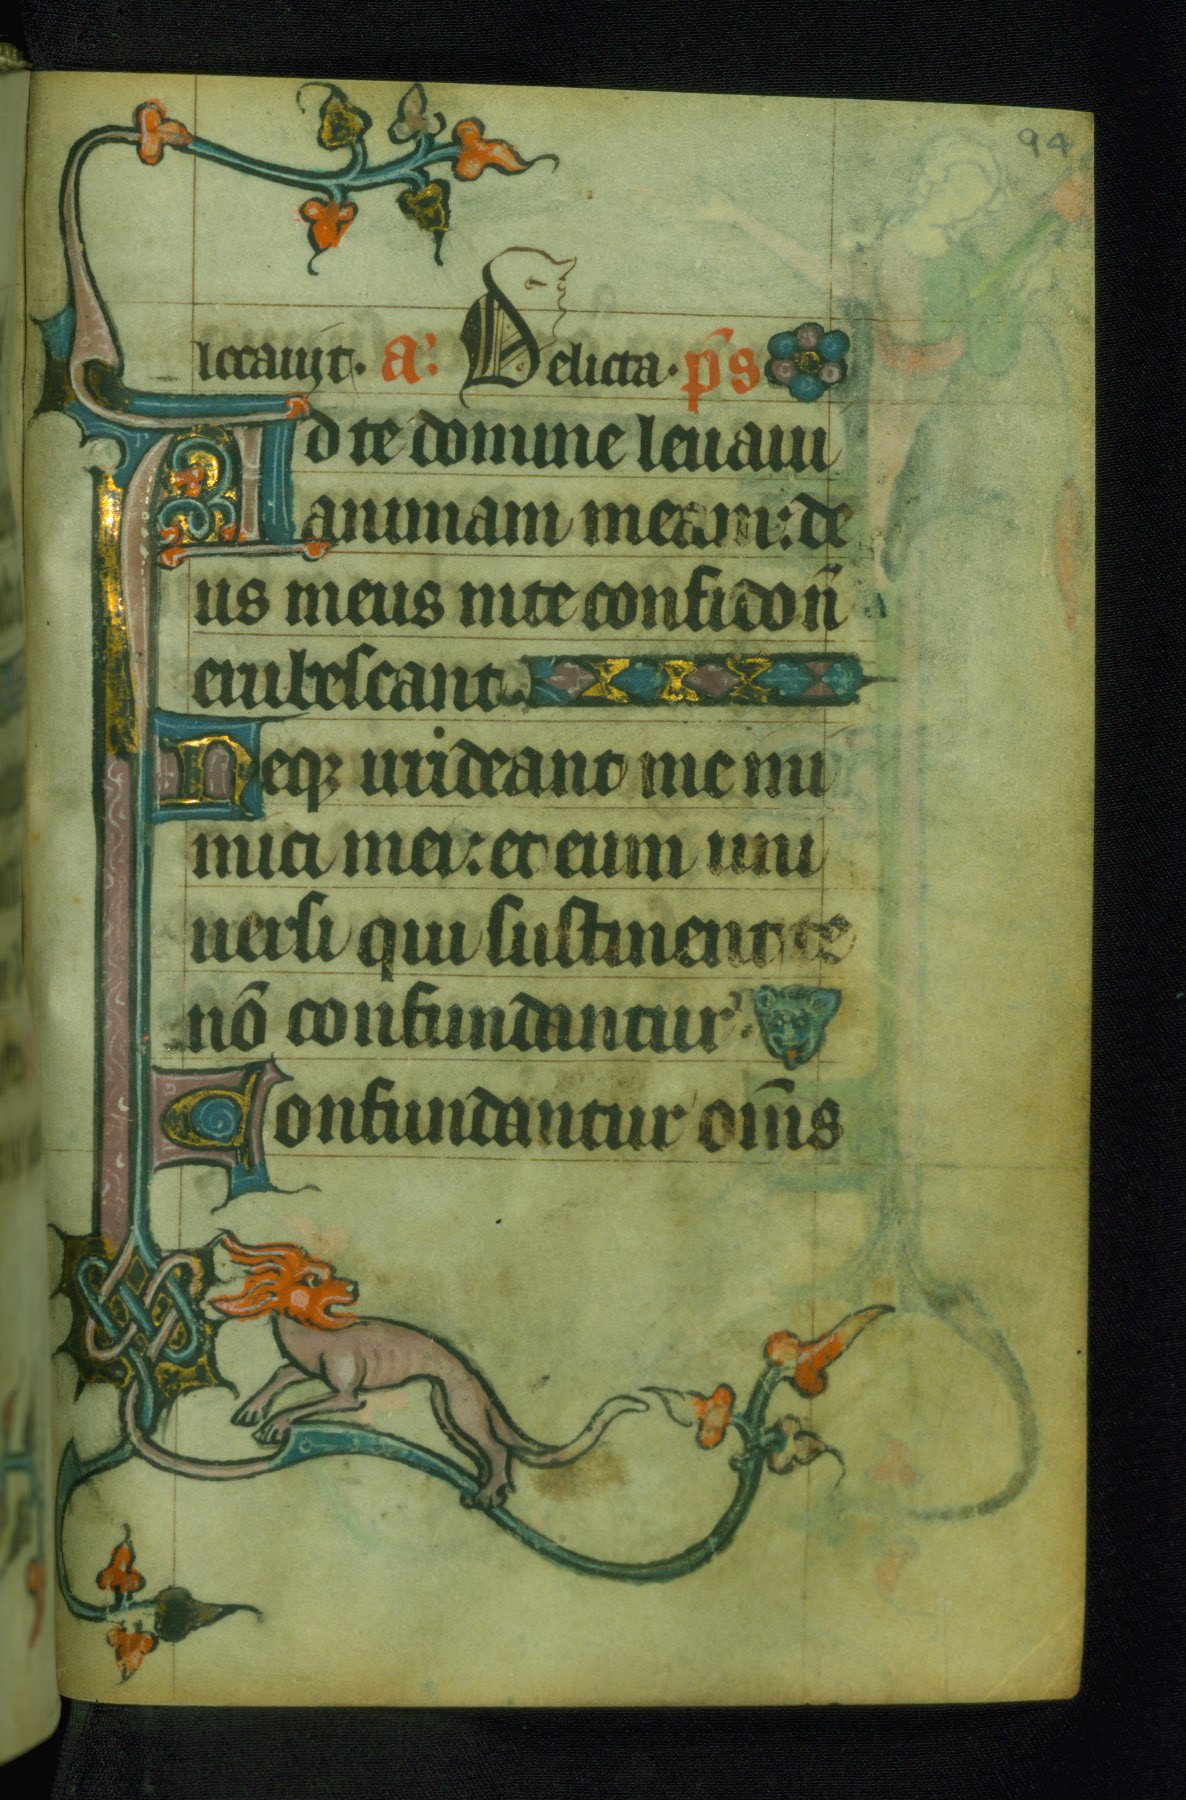 94
locauit. a: Delicta. p̄s
Ad te domine leuaui
animam meam: de
us meus in te confido nō
erubescant
Neqz irrideant me ini
mici mei: et enim uni
uersi qui sustinent te
nō confundantur.
Confundantur om̄s